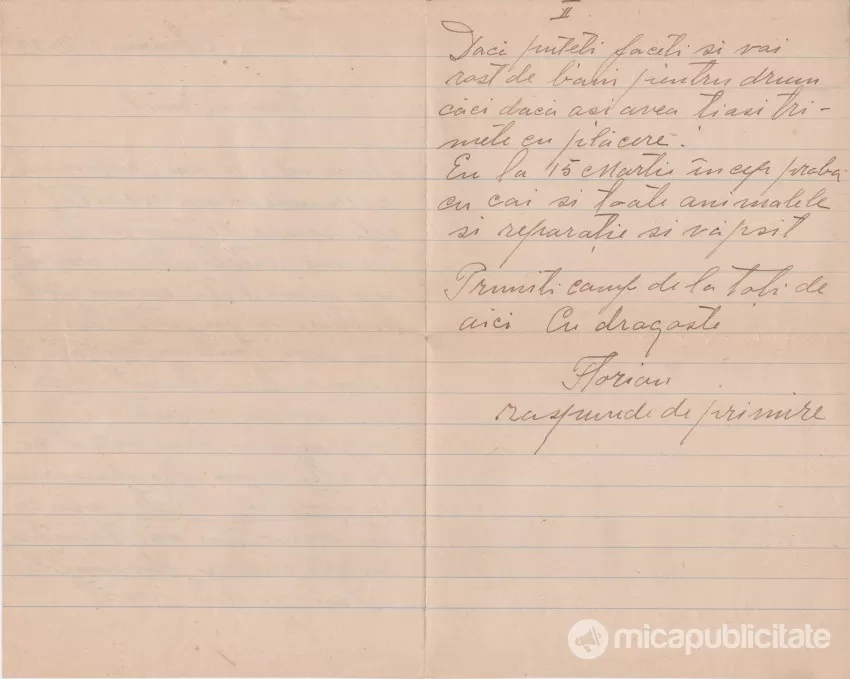 II
Daci puteti faceti si voi
rost de bani pentru drum
căci dacă asi avea tiasi tri-
mete cu plăcere.
Eu la 15 Martie încep proba
cu cai si toate animalele
si reparatie si văpsit
Primiti comp. de la toti de
aici Cu dragoste
Florian
raspunde de primire
micapublicitate